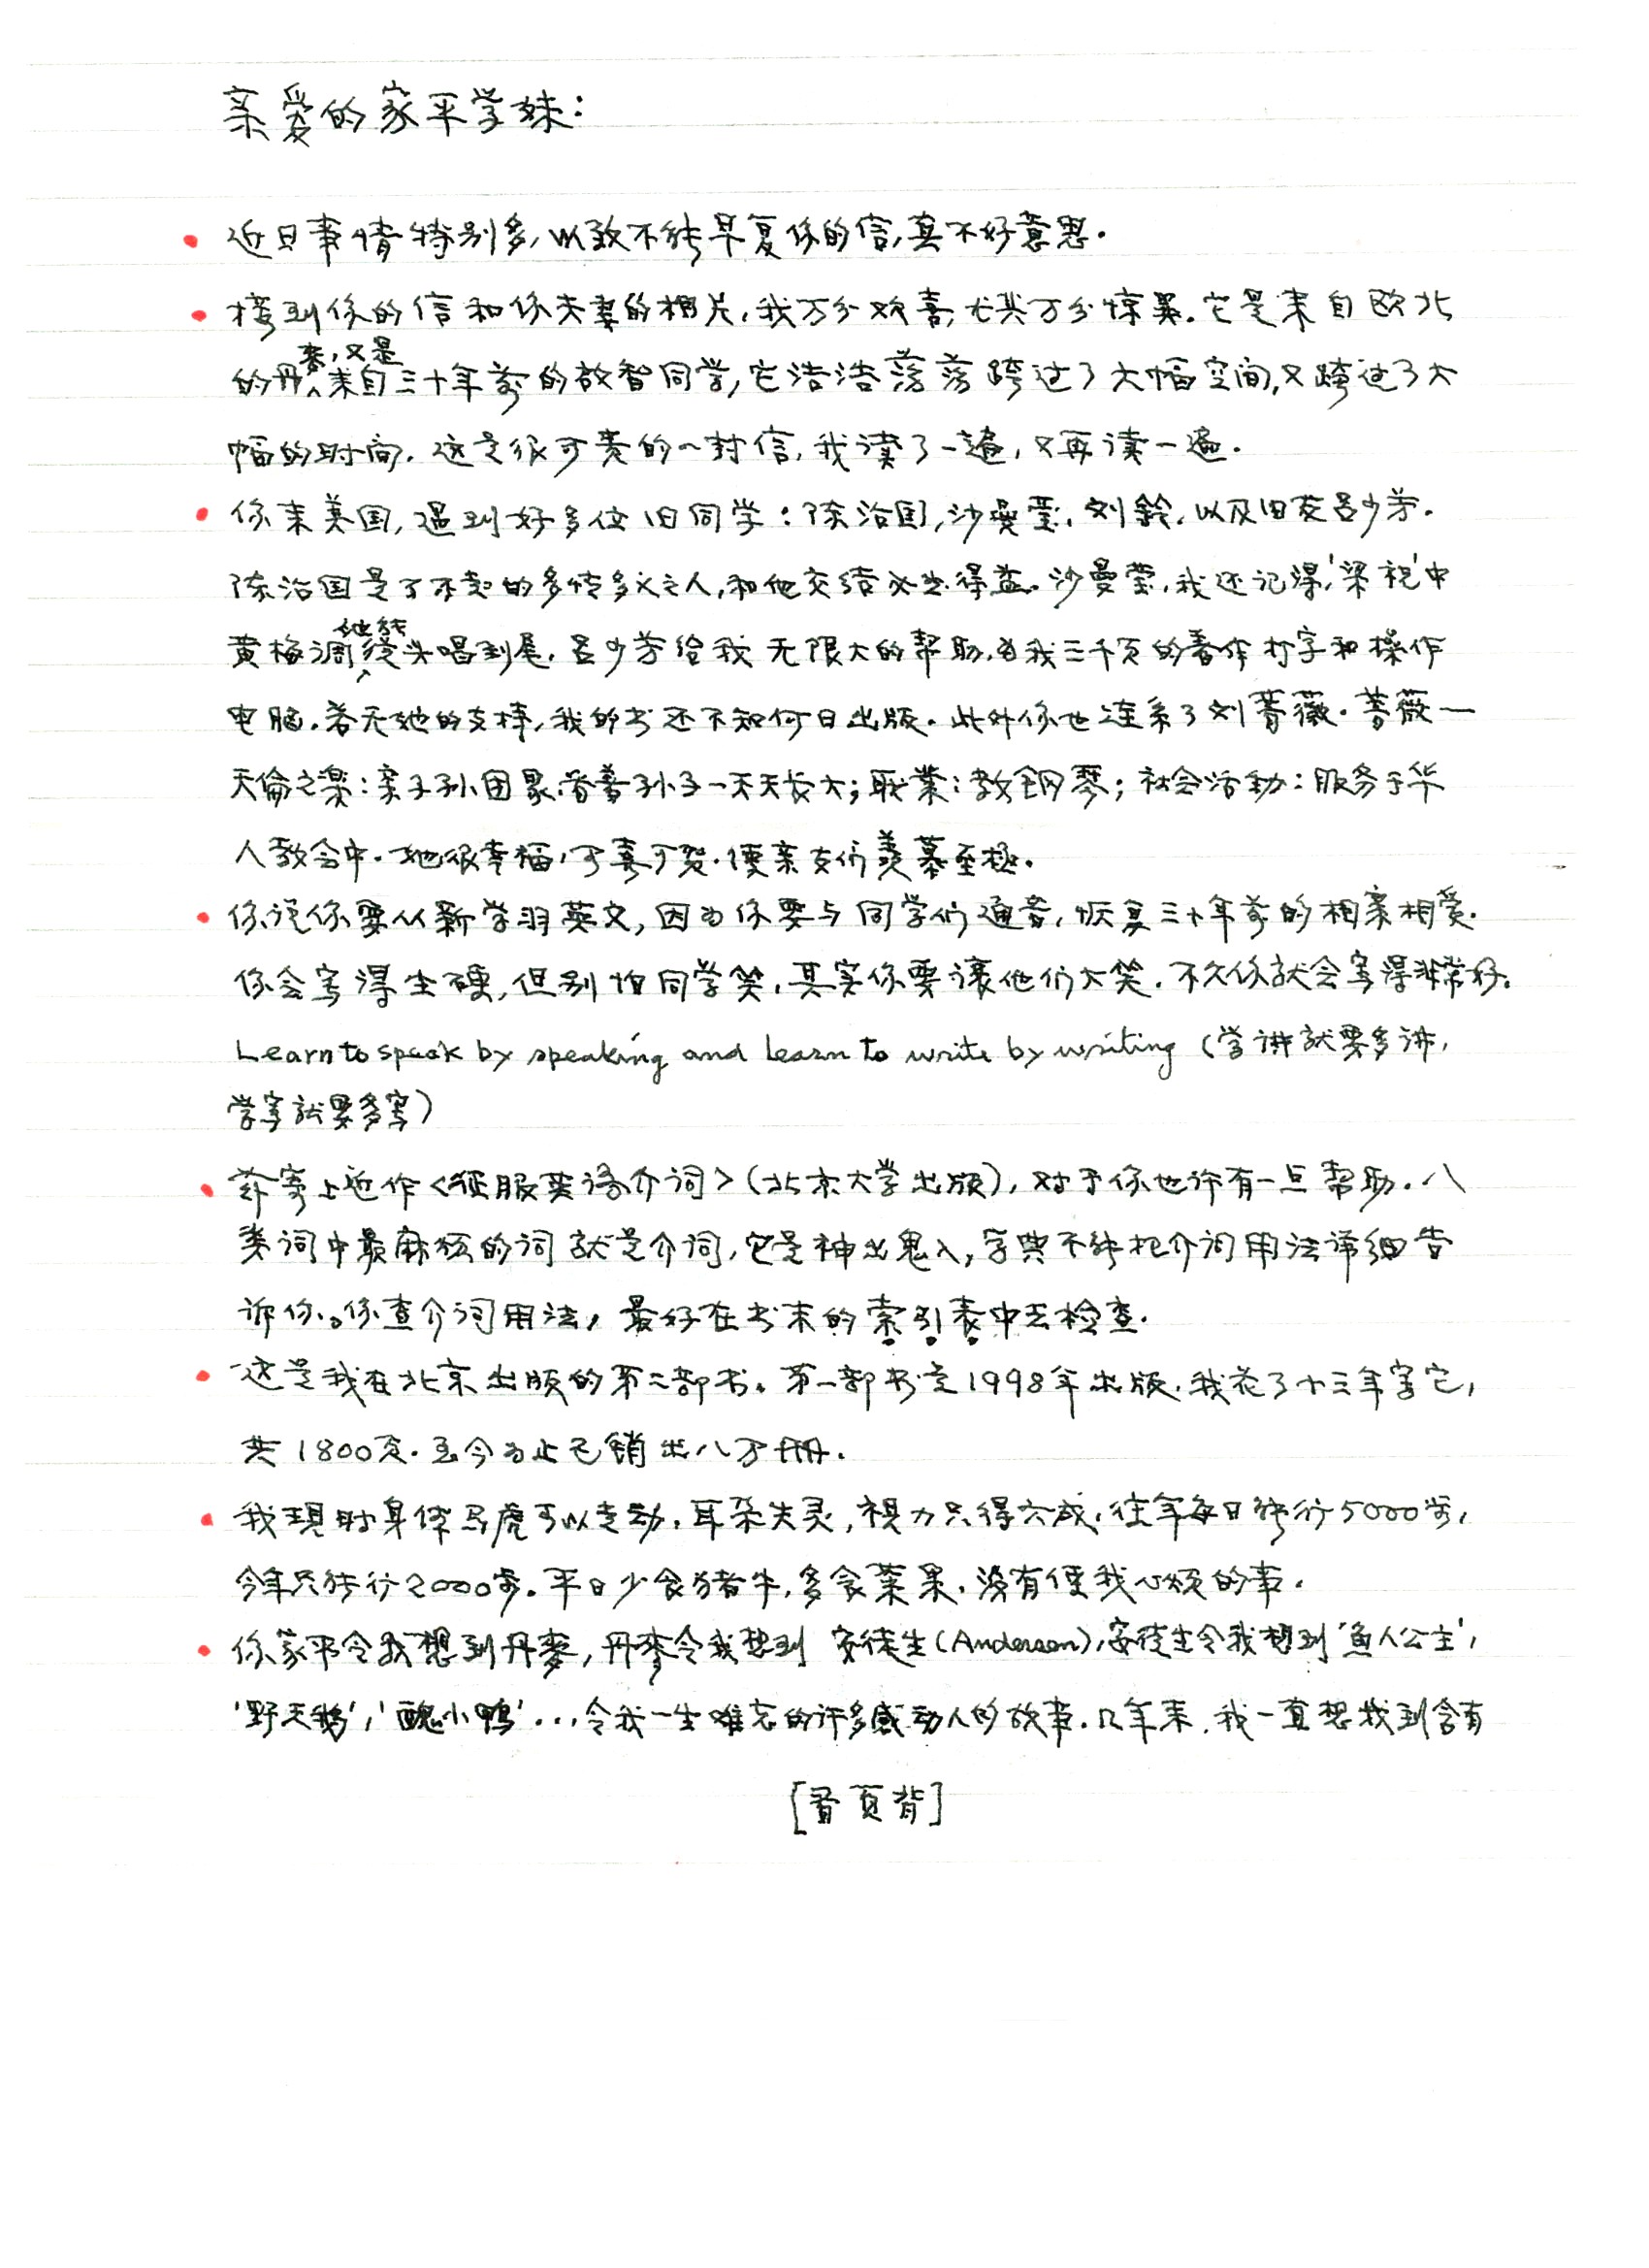 亲爱的家平学妹：
近日事情特别多，以致不能早复你的信，真不好意思．
接到你的信和你夫妻的相片，我万分欢喜，尤其万分惊异．它是来自欧北
的丹麦，又是来自三十年前的故智同学，它浩浩荡荡跨过了大幅空间，又跨过了大
幅的时间．这是很可贵的一封信，我读了一遍，又再读一遍．
你来美国，遇到好多位旧同学：陈治国，沙曼莹，刘铃，以及旧友吕少芳．
陈治国是了不起的多情多义之人，和他交结必然得益．沙曼莹，我还记得，'梁祝'中
黄梅调她能从头唱到尾．吕少芳给我无限大的帮助，为我三千页的著作打字和操作
电脑．若无她的支持，我的书还不知何日出版．此外你也连系了刘蔷薇．蔷薇—
天倫之樂：亲子孙团聚，看着孙子一天天长大；职業：教钢琴；社会活动：服务于华
人教会中．她很幸福，可喜可贺．使亲友们羡慕至极．
你说你要从新学習英文，因为你要与同学们通音，恢复三十年前的相亲相爱．
你会写得生硬，但别怕同学笑，其实你要讓他们大笑．不久你就会写得非常好。
Learn to speak by speaking and learn to write by writing（学讲就要多讲，
学写就要多写）
兹寄上近作<征服英语介词>（北京大学出版），对于你也许有一点帮助．八
类词中最麻烦的词就是介词，它是神出鬼入，字典不能把介词用法详细告
诉你。你查介词用法，最好在书末的索引表中去检查．
这是我在北京出版的第二部书。第一部书是1998年出版．我花了十三年写它，
共1800页．至今为止已销出八万册．
我現时身体马虎可以走动．耳朵失灵，視力只得六成．往年每日能行5000步，
今年只能行2000步．平日少食猪牛，多食菜果．没有使我心烦的事．
你家平令我想到丹麥，丹麥令我想到 安徒生（Andersen），安徒生令我想到'魚人公主'，
'野天鹅'，'醜小鸭'...令我一生难忘的许多感动人的故事．几年来，我一直想找到含有
[看页背]